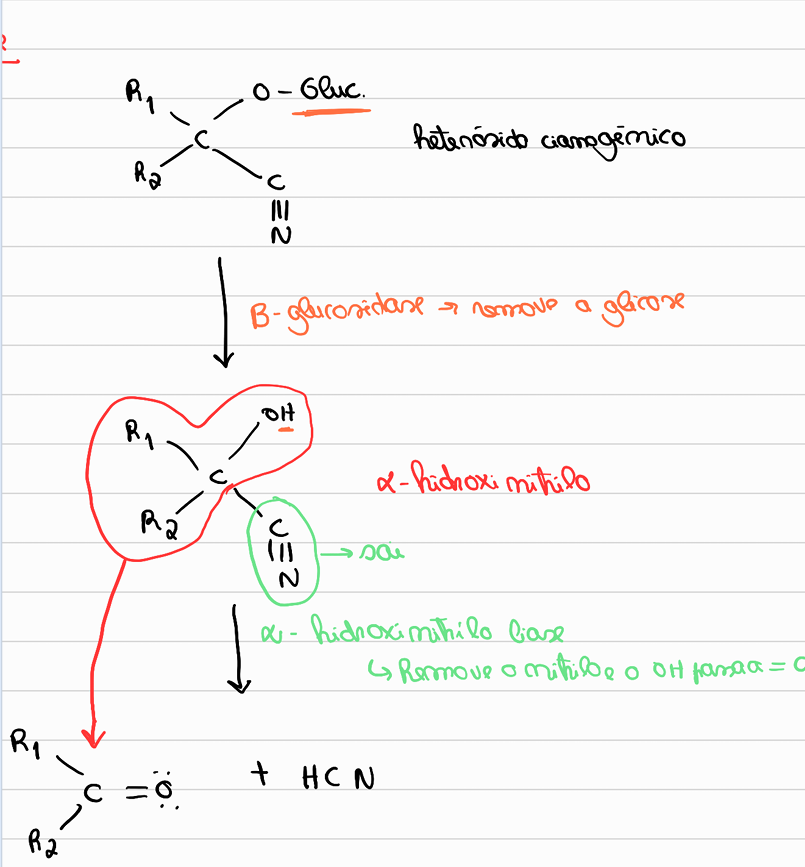 R1 O - Gluc.
C
R2
C
N
heterósido cianogénico
β-glucosidase → remove a glicose
R1 OH
C
R2
C
N
α-hidroxinitrilo
→ sai
α-hidroxinitrilo liase
↳ Remove o nitrilo e o OH passa a = O
R1
C = O
R2
+ HCN